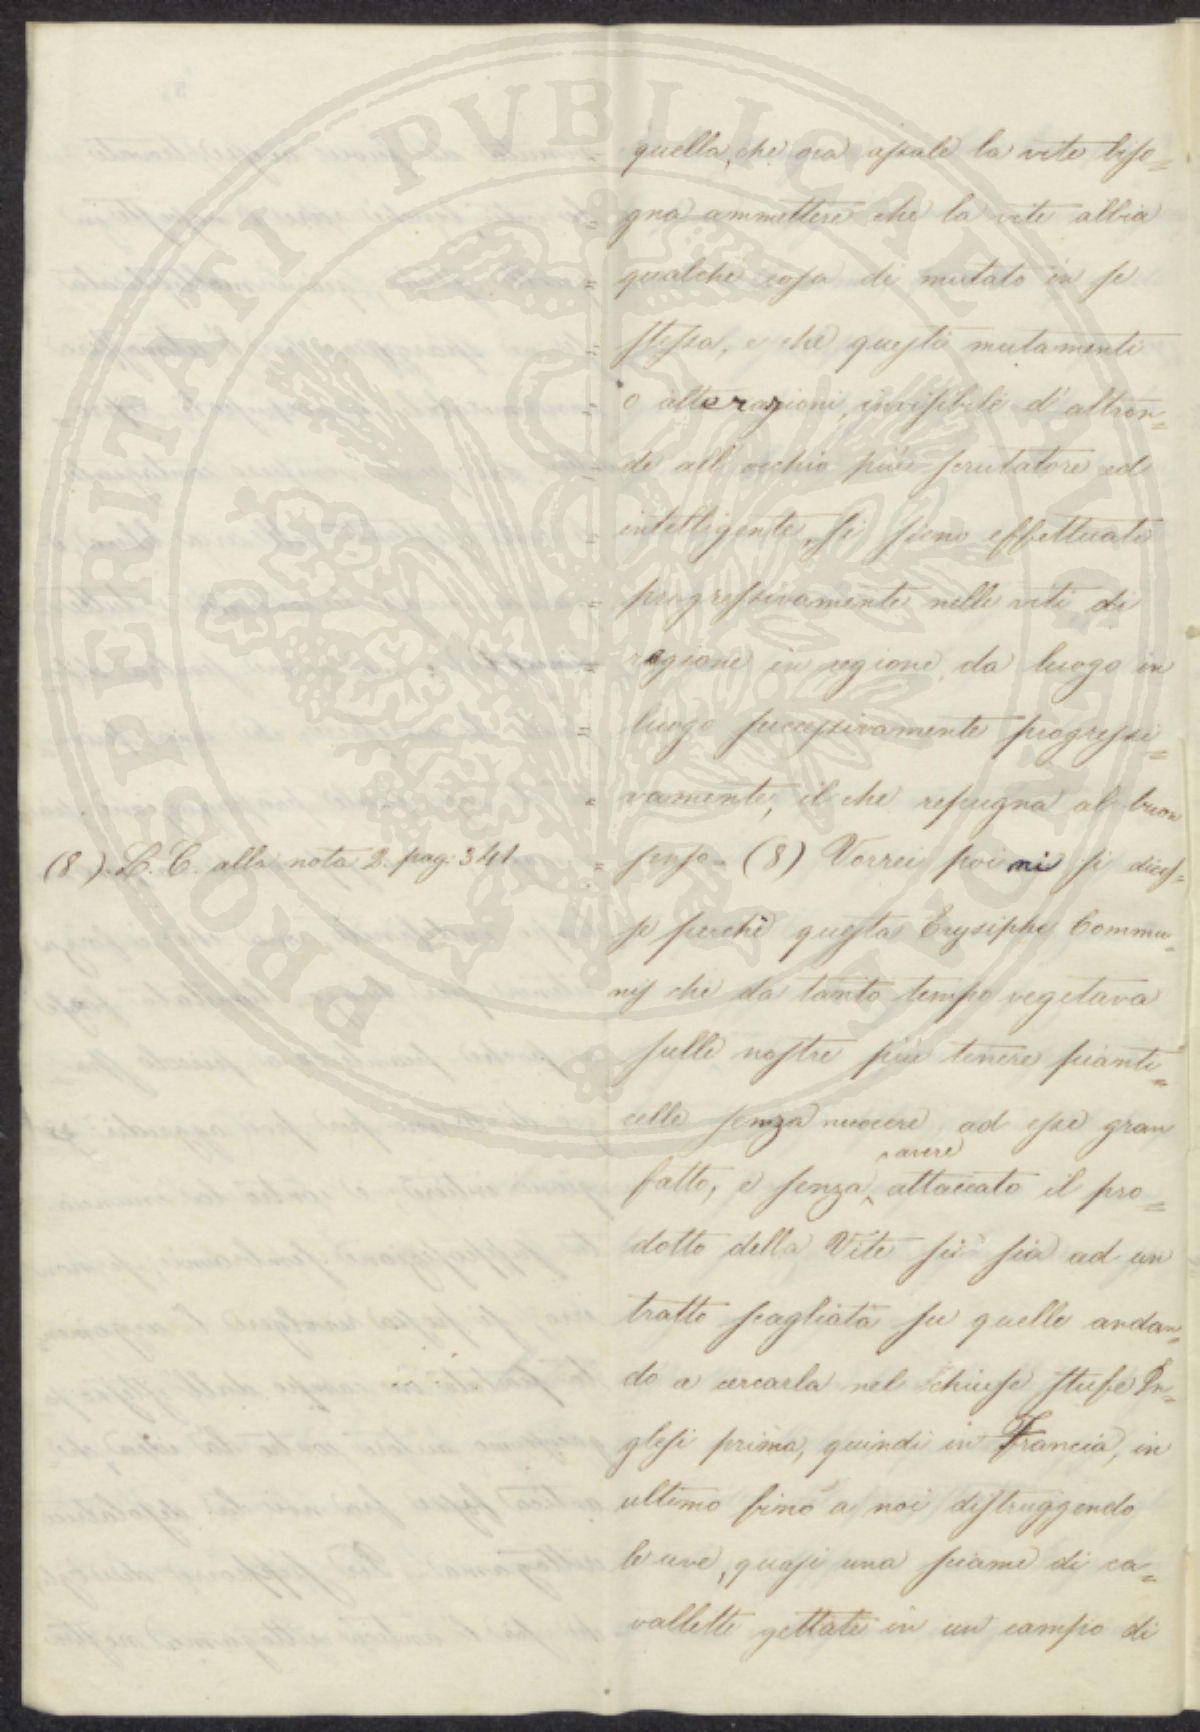 PROSPERITATI PVBLICAE AVGENDAE
quella, che ora assale la vite biso=
" gna ammettere che la vite abbia
" qualche cosa di mutato in se
" stessa, e che questi mutamenti
" o alterazioni, invisibili d'altron=
" de all'occhio più scrutatore ed
" intelligente, si sieno effettuati
" progressivamente nelle viti di
" regione in regione, da luogo in
" luogo successivamente progressi=
" vamente, il che repugna al buon
" senso. (8) Vorrei poi mi si dices=
(8). L. C. alla nota 2. pag: 341
se perchè questa Erysiphe Commu=
nis che da tanto tempo vegetava
sulle nostre più tenere pianti=
celle senza nuocere ad esse gran
fatto, e senza avere attaccato il pro=
dotto della Vite si sia ad un
tratto scagliata su quelle andan=
do a cercarla nel chiuse stufe In=
glesi prima, quindi in Francia, in
ultimo fino a noi distruggendo
le uve, quasi una sciame di ca=
vallette gettate in un campo di